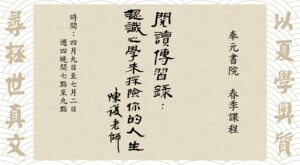 以夏學奧質
奉元書院　春季課程
閱讀傳習錄：
認識心學來探險你的人生
陳復老師
時間：四月九日至七月二日
週四晚間七點至九點
尋拯世真文